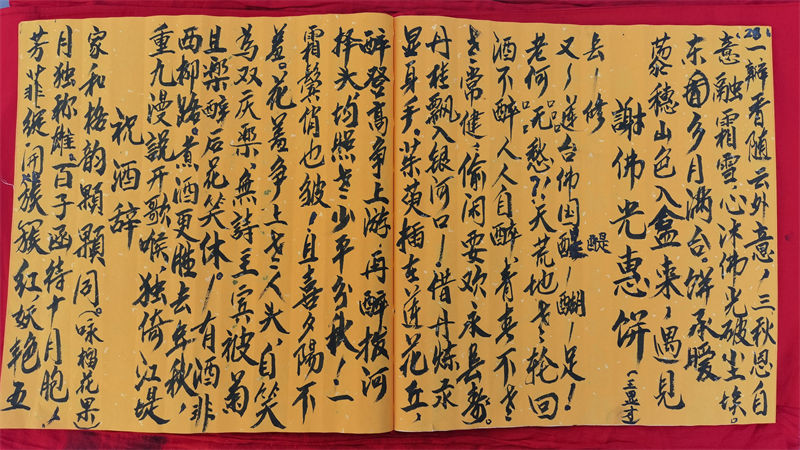 28
一瓣香随云外意，三秋恩自
意融霜雪，心沐佛光破尘埃。
东图多月满台。饼承暖
荔穗山色入盒来，遇见
謝佛光惠饼
（三显寸）
去一修
又一莲台佛国醒醍一醐一足！
老何旡愁？？天荒地老轮回
酒不醉人人自醉，青春不老
老常健，偷闲耍欢永具寿。
丹桂飘入银河口，借丹炼永
显身手，茱萸插在莲花丘，
醉登高争上游再醉拔河
择头均照老少平分秋！二
霜鬓俏也皱，且喜夕陽不
羞。花羞争上老人头，自笑
為双庆樂、無詩主宾被菊
且樂醉后花笑休。有酒非
西柳路。煮酒更胜去年秋，
重九漫說开歌喉，独倚江堤
祝酒辞
家和格韵顆顆同。（咏榴花果）
月独称雄、百子函待十月胞，
芳菲绽开簇簇红，妖艳五